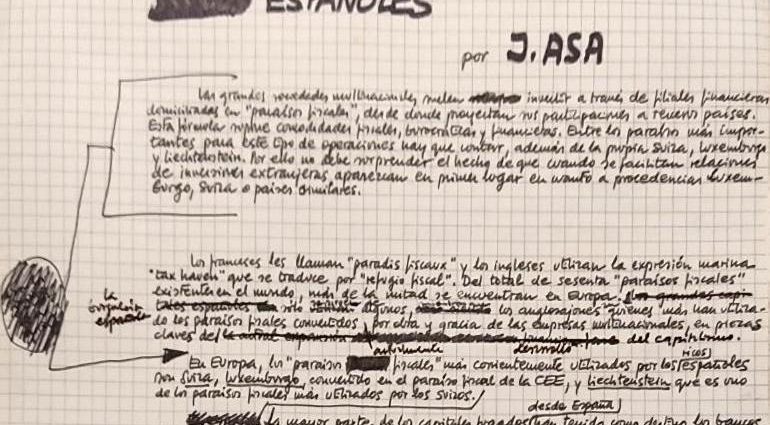 ESPAÑOLES
por J. ASA
Las grandes sociedades multinacionales suelen invertir a través de filiales financieras
domiciliadas en "paraísos fiscales", desde donde proyectan sus participaciones a terceros países.
Esta fórmula supone comodidades fiscales, burocráticas y financieras. Entre los paraísos más impor-
tantes para este tipo de operaciones hay que contar, además de la propia Suiza, Luxemburgo
y Liechtenstein. Por ello no debe sorprender el hecho de que cuando se facilitan relaciones
de inversiones extranjeras aparezcan en primer lugar en cuanto a procedencias Luxem-
burgo, Suiza o países similares.
Los franceses les llaman "paradis fiscaux" y los ingleses utilizan la expresión marina
"tax haven" que se traduce por "refugio fiscal". Del total de sesenta "paraísos fiscales"
existentes en el mundo, más de la mitad se encuentran en Europa.
la
española
sólo algunos, los anglosajones quienes más han utiliza-
do los paraísos fiscales convertidos, por obra y gracia de las empresas multinacionales, en piezas
claves del desarrollo del capitalismo.
En Europa, los "paraísos fiscales" más corrientemente utilizados por los ricos españoles
son Suiza, Luxemburgo, convertido en el paraíso fiscal de la CEE, y Liechtenstein que es uno
de los paraísos fiscales más utilizados por los suizos.
desde España
La mayor parte de los capitales han tenido como destino los bancos